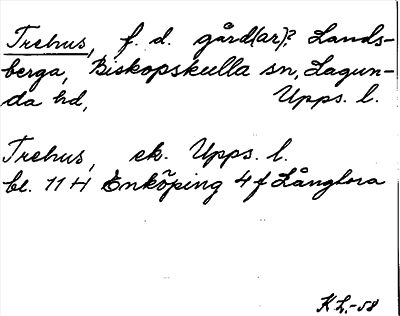 Trehus, f. d. gård(ar)? Lands-
berga, Biskopskulla sn, Lagun-
da hd, Upps. l.
Trehus, ek. Upps. l.
bl. 11 H Enköping 4 f Långlora
K L.-58